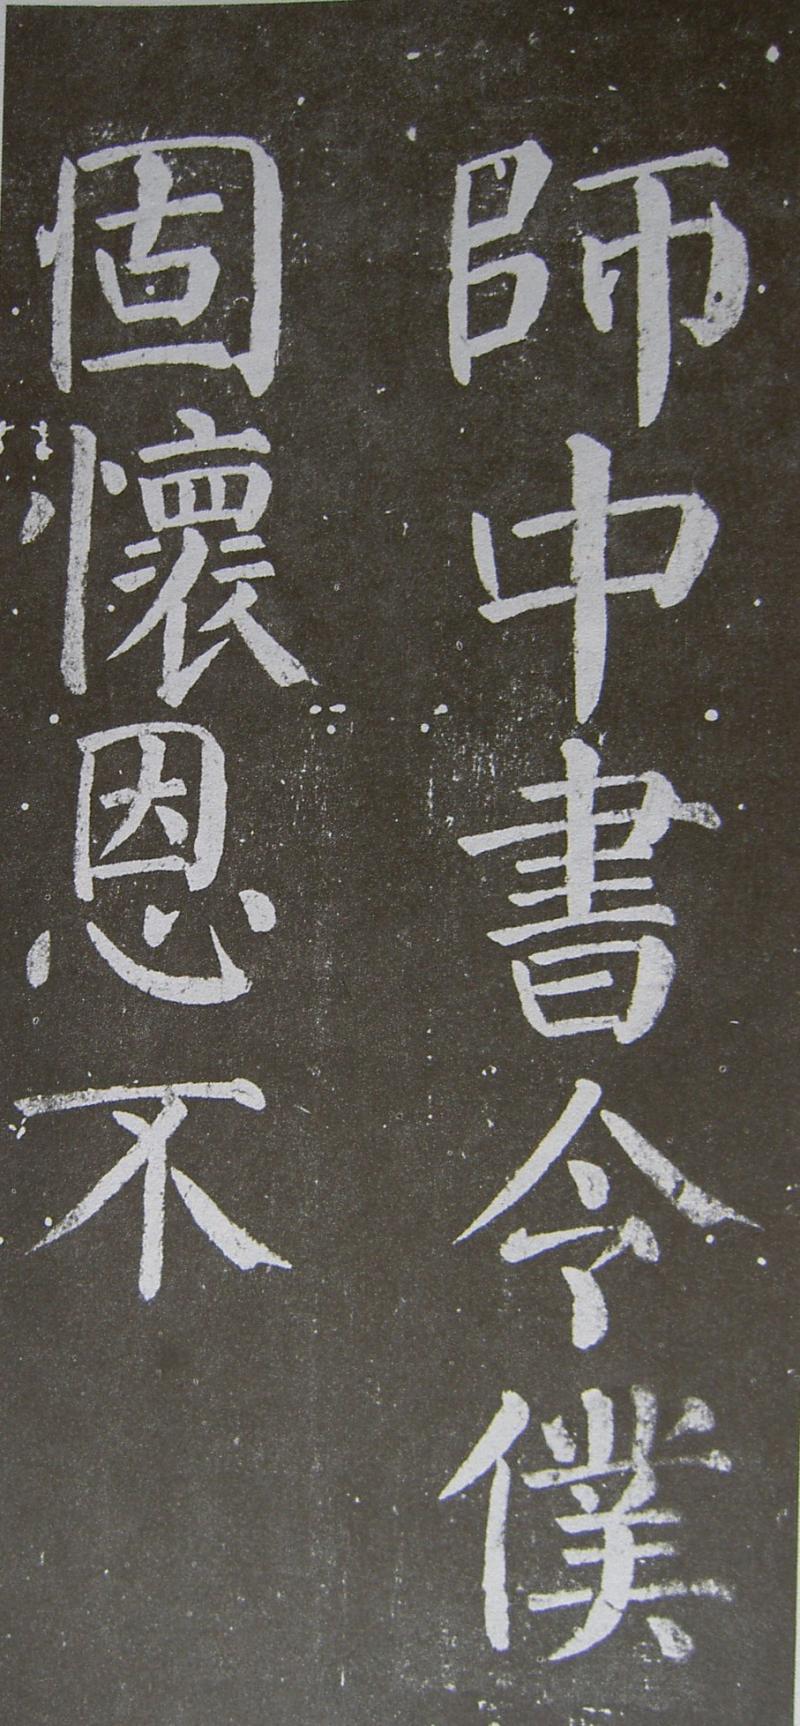 師中書令僕
固懷恩不